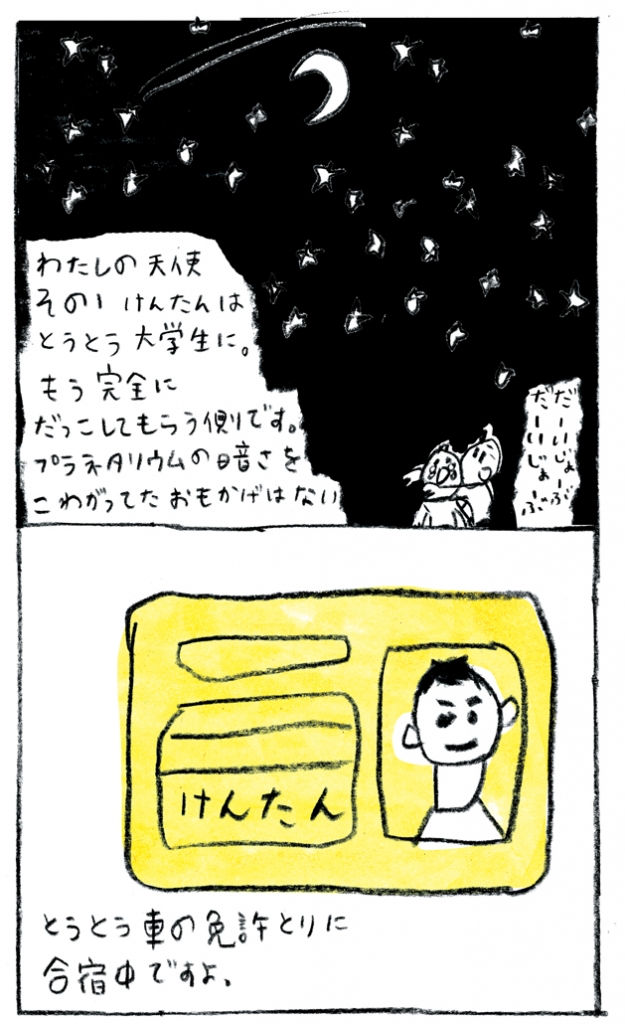 わたしの天使
その1 けんたんは
とうとう大学生に。
もう完全に
だっこしてもらう側です。
プラネタリウムの暗さを
こわがってたおもかげはない
だーいじょーぶ
だーいじょーぶ
けんたん
とうとう車の免許とりに
合宿中ですよ、